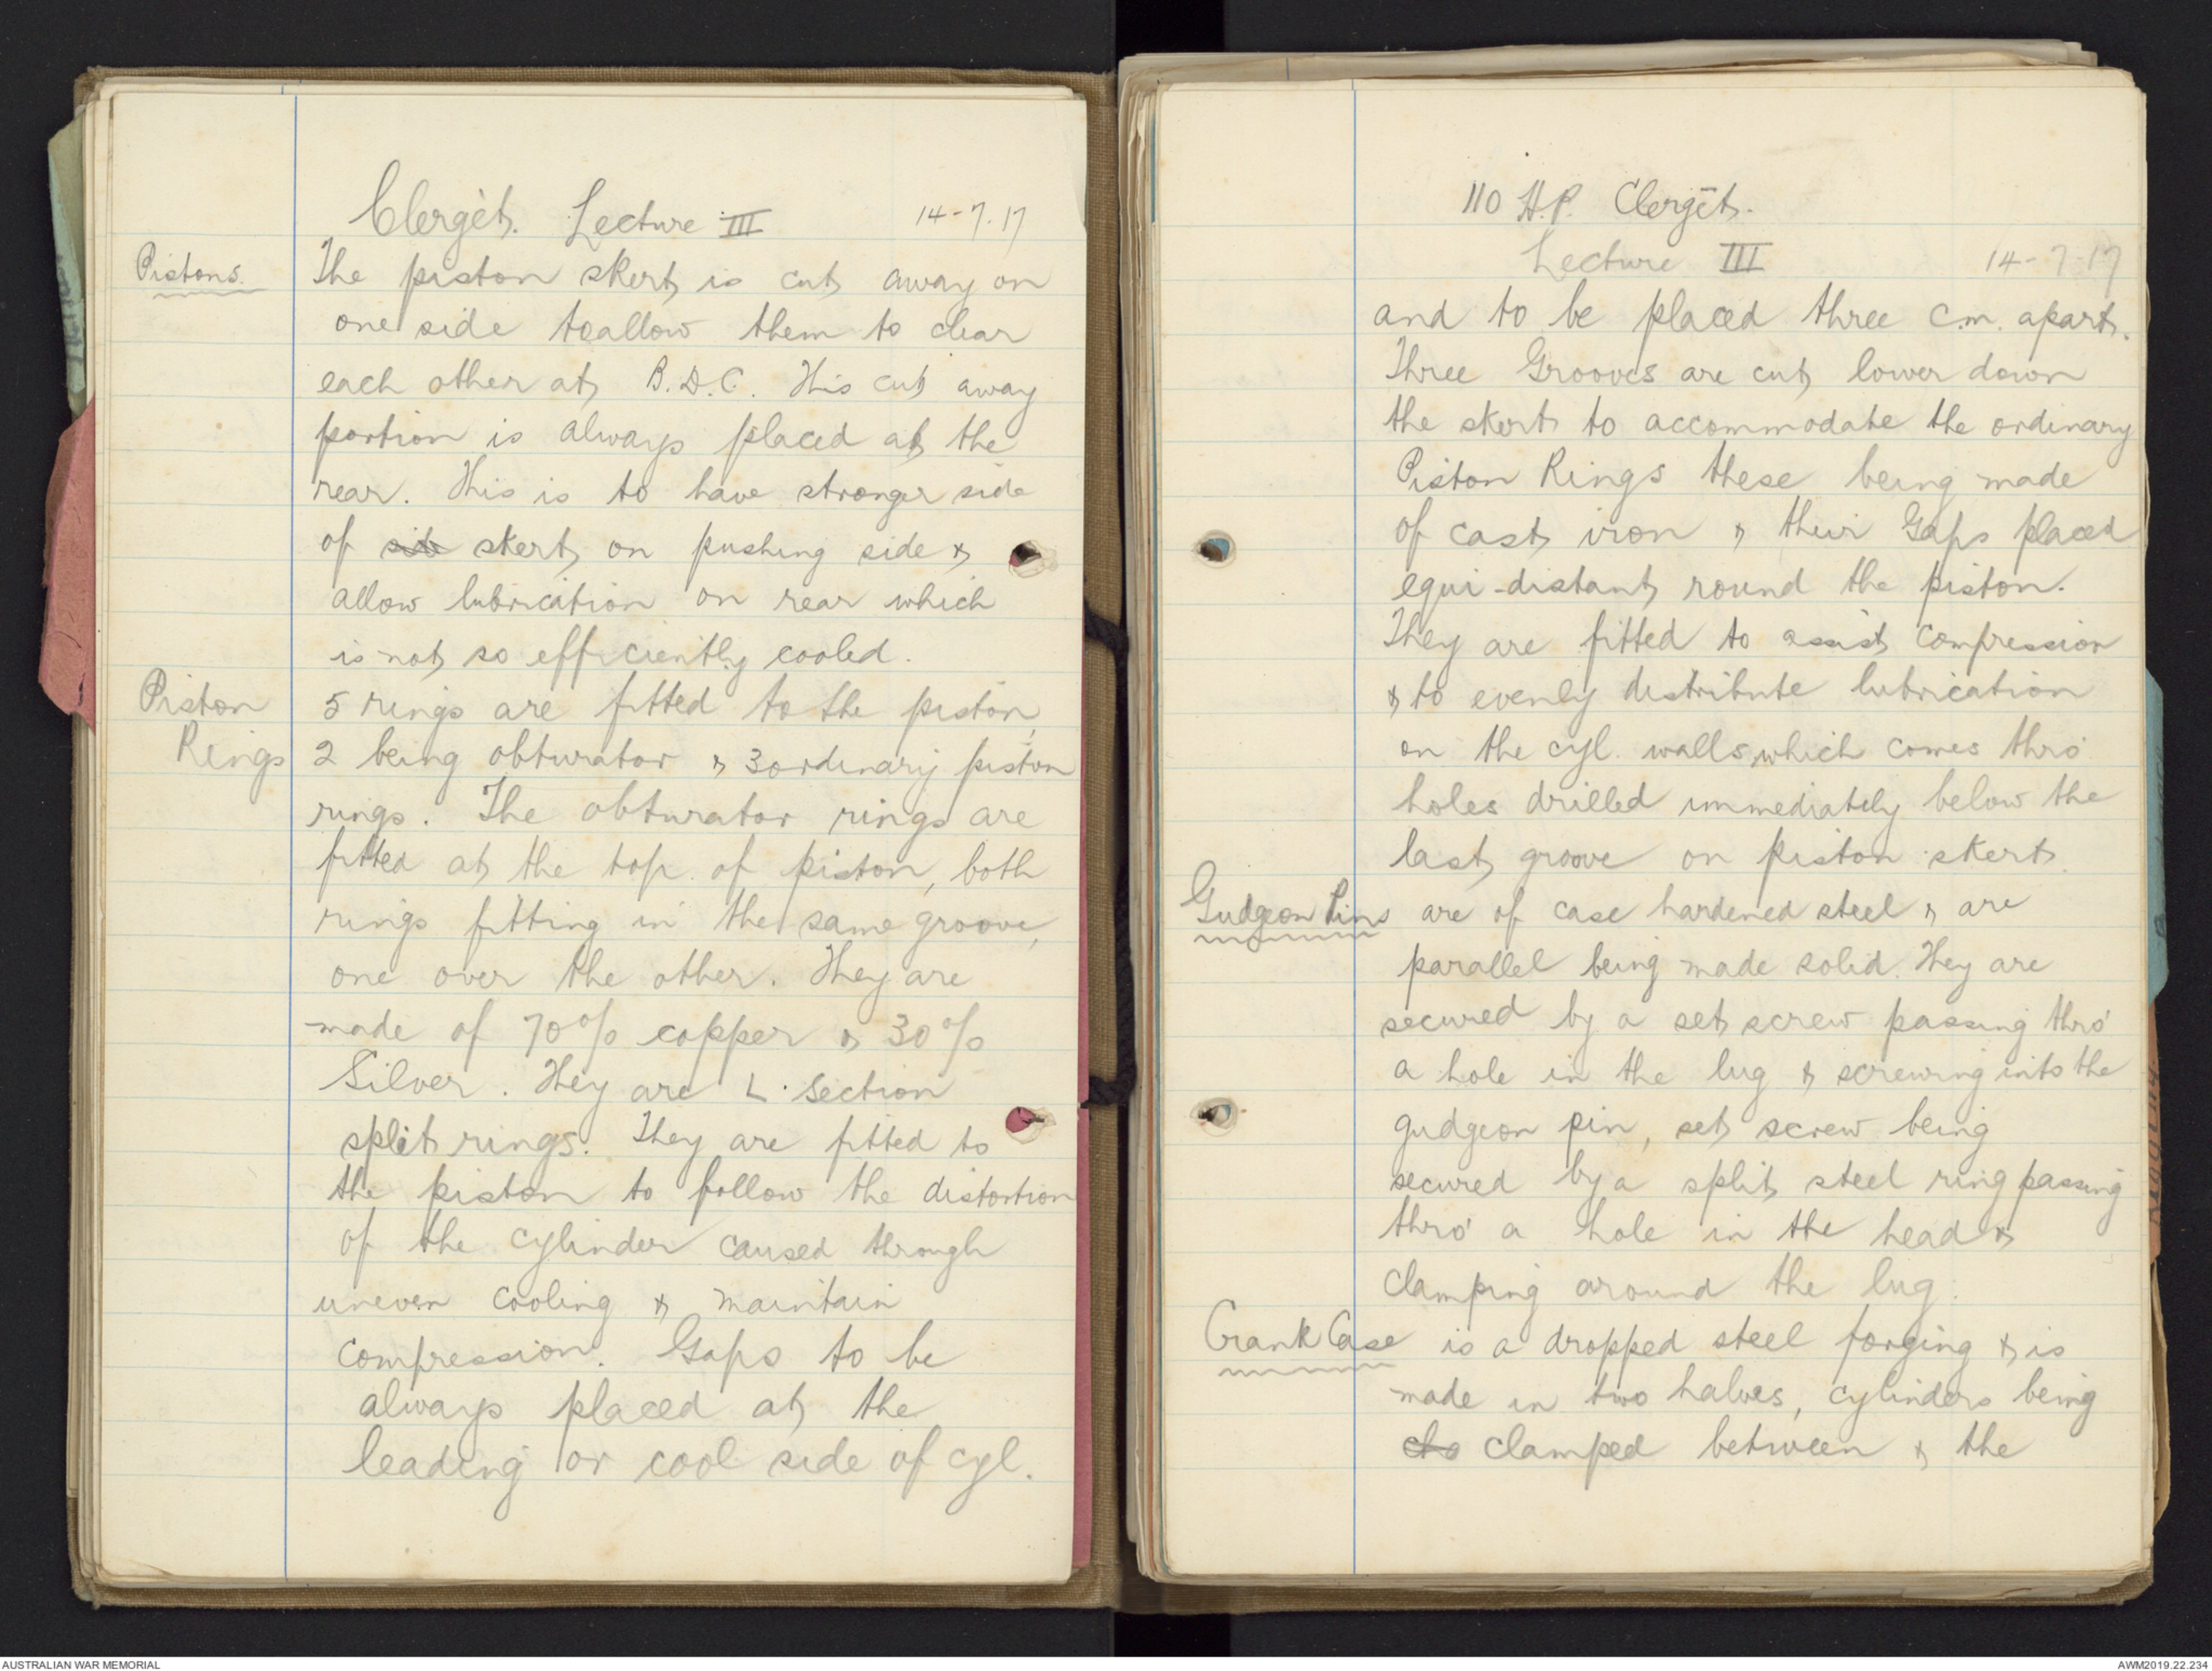 Clergèt. Lecture III 14-7.17
Pistons. The piston skert is cut away on
one side toallow them to clear
each other at B.D.C. This cut away
portion is always placed at the
rear. This is to have stronger side
of side skert on pushing side &
allow lubrication on rear which
is not so efficiently cooled.
Piston 5 rings are fitted to the piston,
Rings 2 being obturator & 3 ordinary piston
rings. The obturator rings are
fitted at the top of piston, both
rings fitting in the same groove,
one over the other. They are
made of 70% copper & 30%
Silver. They are L. section
split rings. They are fitted to
the piston to follow the distortion
of the cylinder caused through
uneven cooling & maintain
compression. Gaps to be
always placed at the
leading or cool side of cyl.
110 H.P. Clergēt.
Lecture III 14-7-17
and to be placed three c.m. apart.
Three Grooves are cut lower down
the skert to accommodate the ordinary
Piston Rings these being made
of cast iron & their Gaps placed
equi-distant round the piston.
They are fitted to assist compression
& to evenly distribute lubrication
on the cyl. walls, which comes thro'
holes drilled immediately below the
last groove on piston skert.
Gudgeon Pins are of case hardened steel & are
parallel being made solid. They are
secured by a set screw passing thro'
a hole in the lug & screwing into the
gudgeon pin, set screw being
secured by a split steel ring passing
thro' a hole in the head &
clamping around the lug.
Crank Case is a dropped steel forging & is
made in two halves, cylinders being
cla clamped between & the
AUSTRALIAN WAR MEMORIAL
AWM2019.22.234